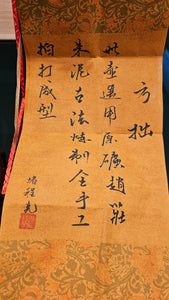 方拙
此壶选用原矿赵庄
朱泥古法炼制全手工
拍打成型